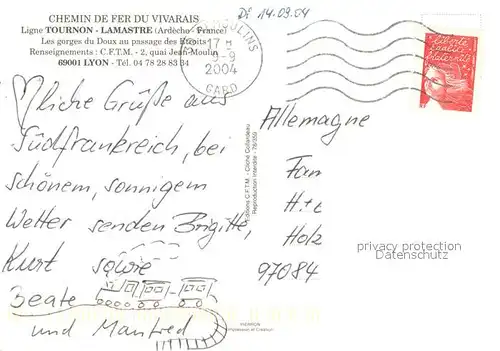 CHEMIN DE FER DU VIVARAIS
Ligne TOURNON - LAMASTRE (Ardèche - France)
Les gorges du Doux au passage des Etroits
Renseignements : C.F.T.M. - 2, quai Jean-Moulin
69001 LYON - Tél. 04 78 28 83 34
MOULINS
17 H
9-9
2004
GARD
DE 14.09.04
♡liche Grüße aus
Südfrankreich, bei
schönem, sonnigem
Wetter senden Brigitte,
Kurt sowie
Beate
und Manfred
Editions C.F.T.M. - Cliché Collardeau
Reproduction Interdite - 76/359
Allemagne
Fam
H+
Holz
97084
privacy protection
watermark